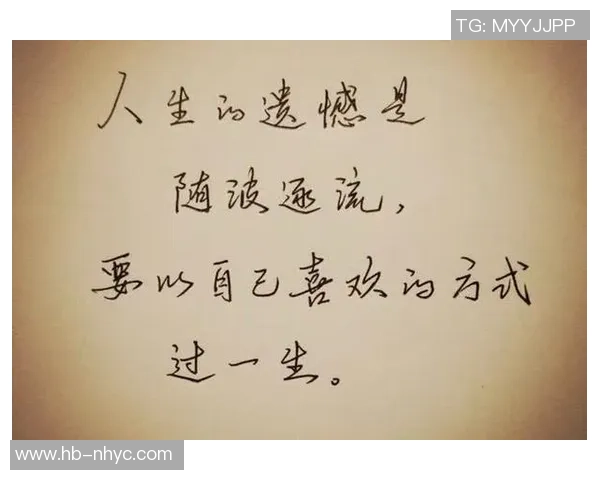 TG: MYYJJPP
人生的遗憾是
随波逐流，
要以自己喜欢的方式
过一生。
www.hb-nhyc.com